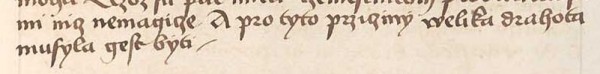 mi niz nemagize. A pro tyto prziziny welika drahota
musyla gest byti